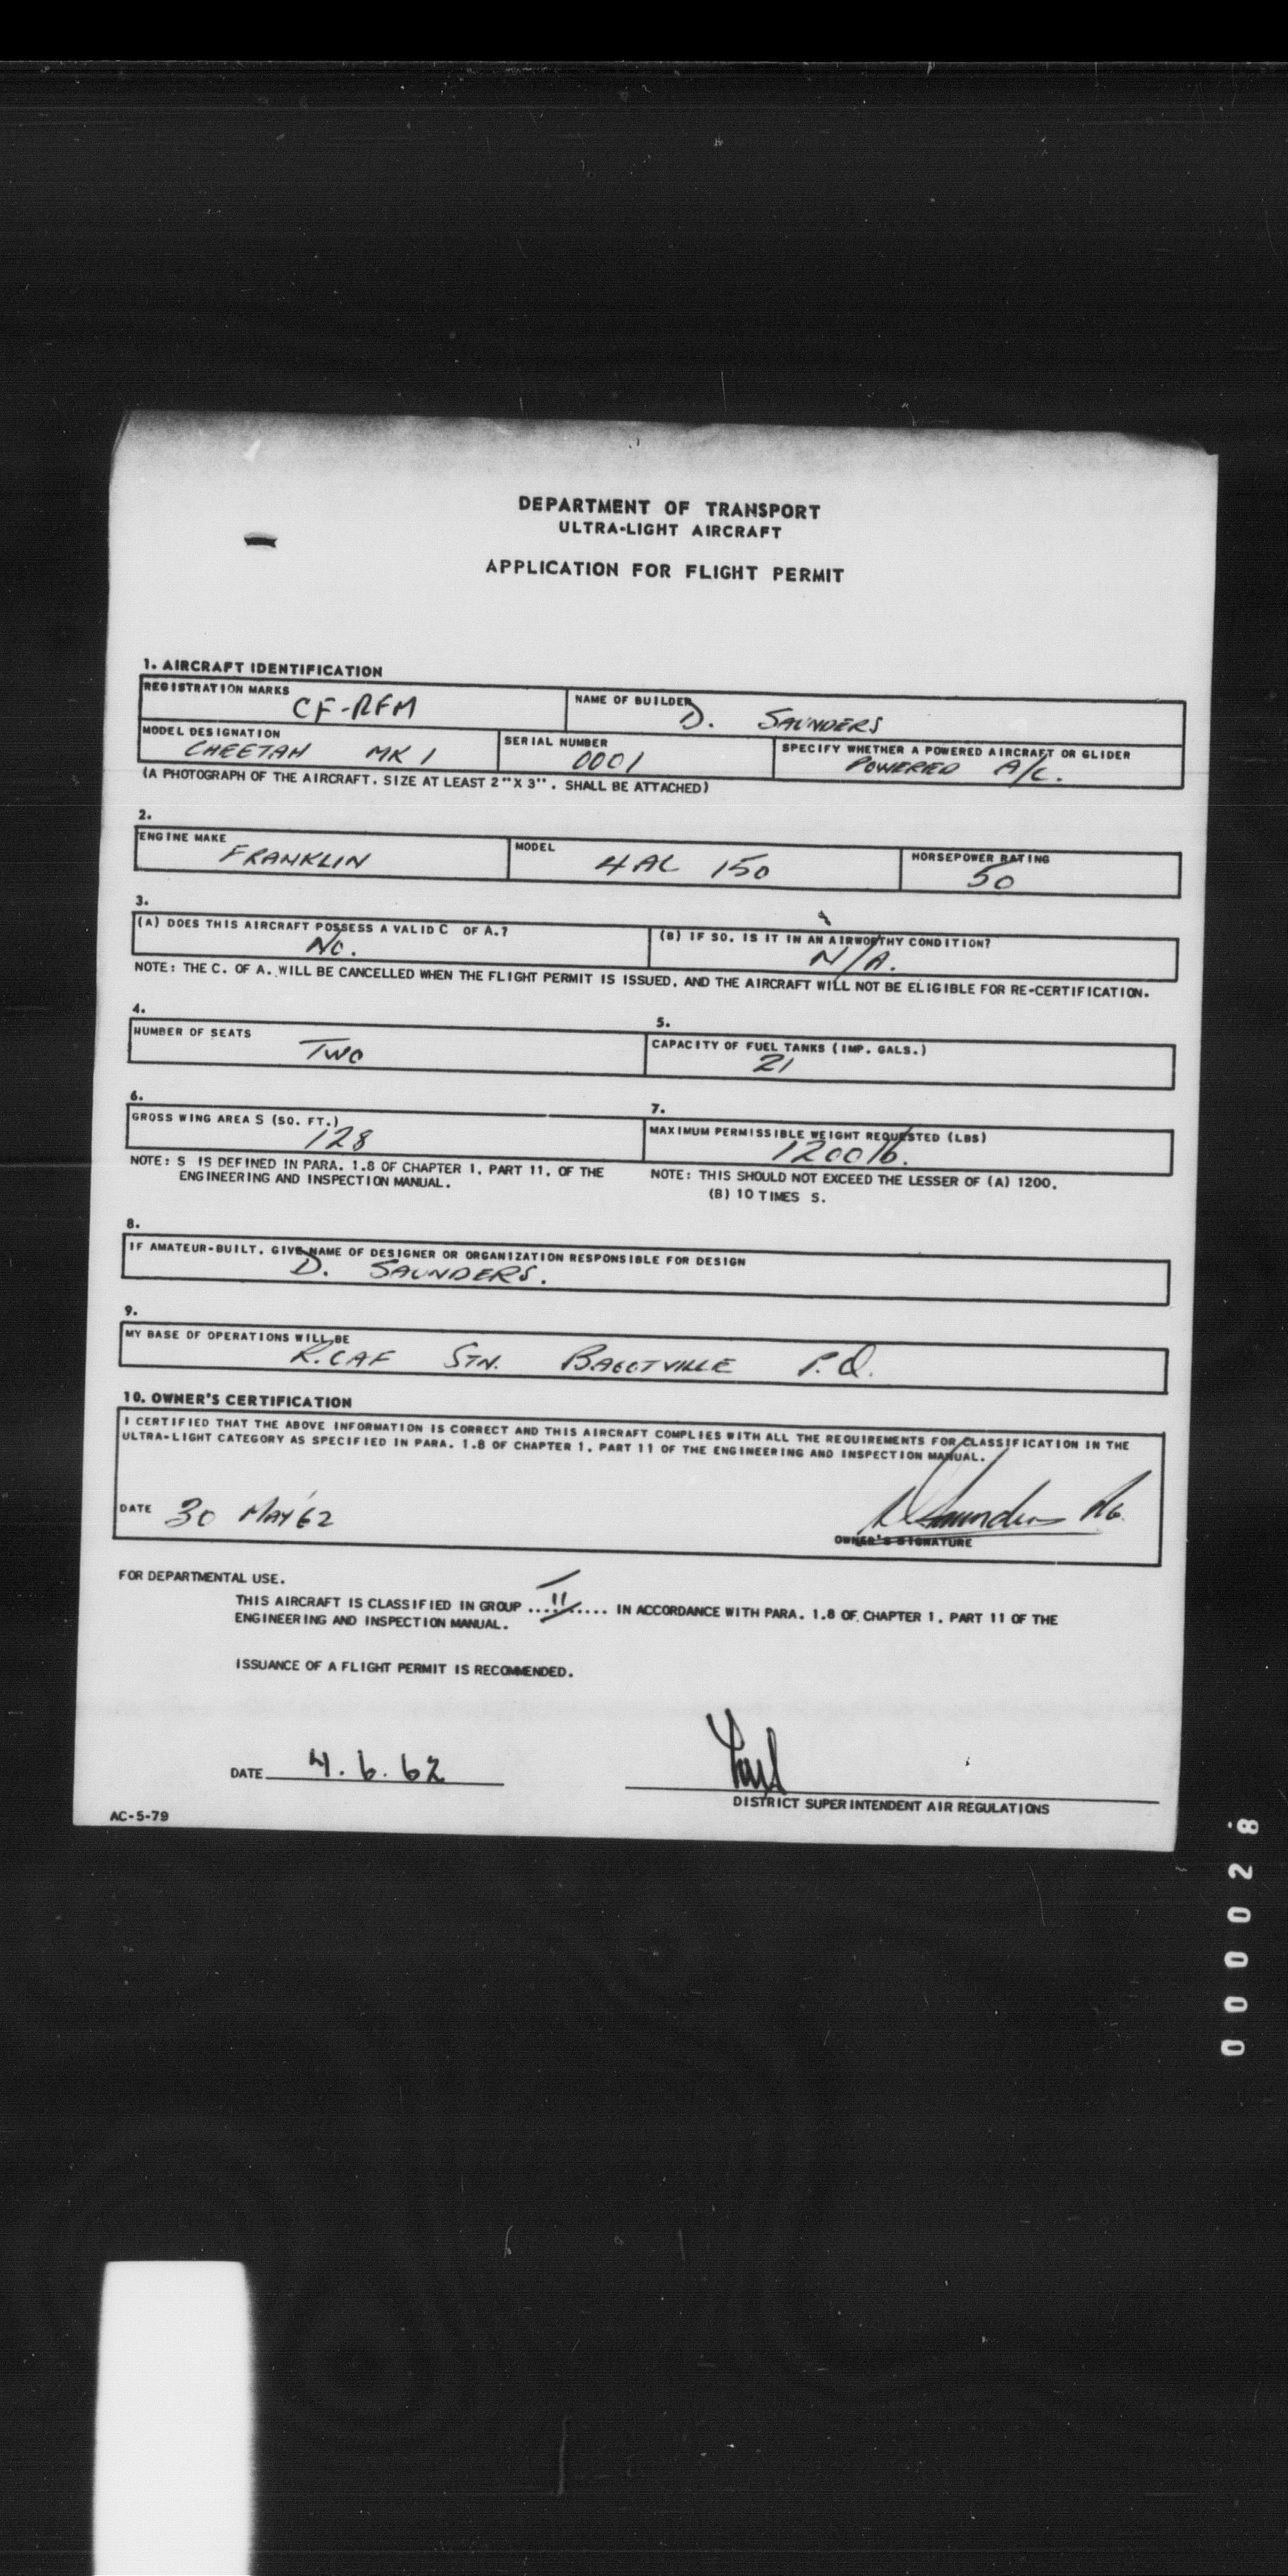 DEPARTMENT OF TRANSPORT
ULTRA-LIGHT AIRCRAFT
APPLICATION FOR FLIGHT PERMIT
1. AIRCRAFT IDENTIFICATION
REGISTRATION MARKS
CF-RFM
NAME OF BUILDER
D. SAUNDERS
MODEL DESIGNATION
CHEETAH MK 1
SERIAL NUMBER
0001
SPECIFY WHETHER A POWERED AIRCRAFT OR GLIDER
POWERED A/C.
(A PHOTOGRAPH OF THE AIRCRAFT, SIZE AT LEAST 2"X 3", SHALL BE ATTACHED)
2.
ENGINE MAKE
FRANKLIN
MODEL
4AC 150
HORSEPOWER RATING
50
3.
(A) DOES THIS AIRCRAFT POSSESS A VALID C OF A.?
NO.
(B) IF SO, IS IT IN AN AIRWORTHY CONDITION?
N/A.
NOTE: THE C. OF A. WILL BE CANCELLED WHEN THE FLIGHT PERMIT IS ISSUED, AND THE AIRCRAFT WILL NOT BE ELIGIBLE FOR RE-CERTIFICATION.
4.
NUMBER OF SEATS
TWO
5.
CAPACITY OF FUEL TANKS (IMP. GALS.)
21
6.
GROSS WING AREA S (SQ. FT.)
128
7.
MAXIMUM PERMISSIBLE WEIGHT REQUESTED (LBS)
1200 lb.
NOTE: S IS DEFINED IN PARA. 1.8 OF CHAPTER 1, PART 11, OF THE
ENGINEERING AND INSPECTION MANUAL.
NOTE: THIS SHOULD NOT EXCEED THE LESSER OF (A) 1200,
(B) 10 TIMES S.
8.
IF AMATEUR-BUILT, GIVE NAME OF DESIGNER OR ORGANIZATION RESPONSIBLE FOR DESIGN
D. SAUNDERS.
9.
MY BASE OF OPERATIONS WILL BE
R.CAF STN. BAGOTVILLE P.Q.
10. OWNER'S CERTIFICATION
I CERTIFIED THAT THE ABOVE INFORMATION IS CORRECT AND THIS AIRCRAFT COMPLIES WITH ALL THE REQUIREMENTS FOR CLASSIFICATION IN THE
ULTRA-LIGHT CATEGORY AS SPECIFIED IN PARA. 1.8 OF CHAPTER 1, PART 11 OF THE ENGINEERING AND INSPECTION MANUAL.
DATE 30 MAY '62
D Saunders
OWNER'S SIGNATURE
FOR DEPARTMENTAL USE.
THIS AIRCRAFT IS CLASSIFIED IN GROUP ....11..... IN ACCORDANCE WITH PARA. 1.8 OF CHAPTER 1, PART 11 OF THE
ENGINEERING AND INSPECTION MANUAL.
ISSUANCE OF A FLIGHT PERMIT IS RECOMMENDED.
DATE 4.6.62
DISTRICT SUPERINTENDENT AIR REGULATIONS
AC-5-79
000028